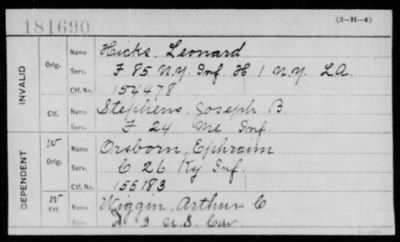 181690
(3-21-4)
INVALID
Orig.
Name Hicks, Leonard
Serv. F 85 N.Y. Inf. H 1 N.Y. L.A.
Ctf. No. 154478
Ctf.
Name Stephens, Joseph B.
Serv. F 24 Me Inf
DEPENDENT
W
Orig.
Name Orsborn, Ephraim
Serv. C 26 Ky Inf.
Ctf. No. 155183
W
Ctf.
Name Wiggin, Arthur C
3 U.S. Cav